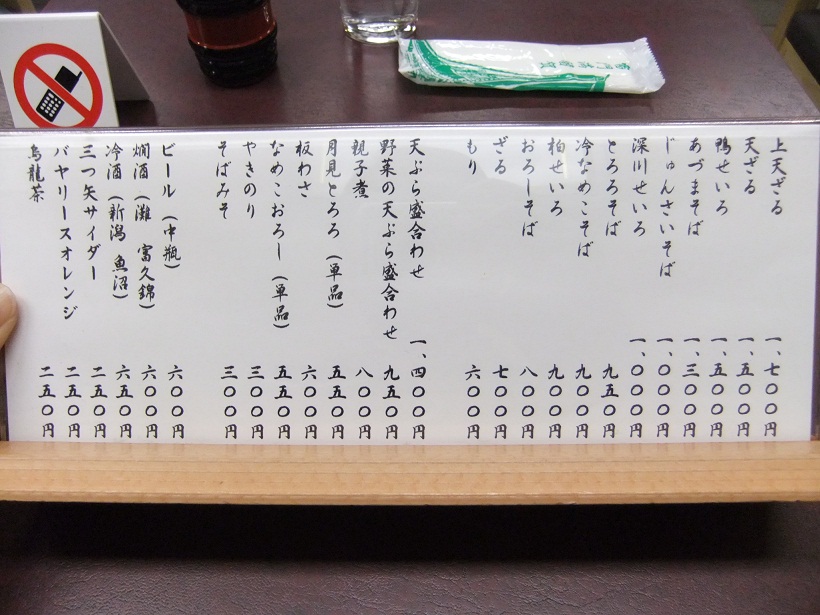 上天ざる 一、七〇〇円
天ざる 一、五〇〇円
鴨せいろ 一、五〇〇円
あづまそば 一、三〇〇円
じゅんさいそば 一、〇〇〇円
深川せいろ 一、〇〇〇円
とろろそば 九五〇円
冷なめこそば 九〇〇円
柏せいろ 九〇〇円
おろしそば 八〇〇円
ざる 七〇〇円
もり 六〇〇円
天ぷら盛合わせ 一、四〇〇円
野菜の天ぷら盛合わせ 九五〇円
親子煮 八〇〇円
月見とろろ(単品) 五五〇円
板わさ 六〇〇円
なめこおろし(単品) 五五〇円
やきのり 三〇〇円
そばみそ 三〇〇円
ビール(中瓶) 六〇〇円
燗酒(灘 富久錦) 六〇〇円
冷酒(新潟 魚沼) 六五〇円
三つ矢サイダー 二五〇円
バヤリースオレンジ 二五〇円
烏龍茶 二五〇円